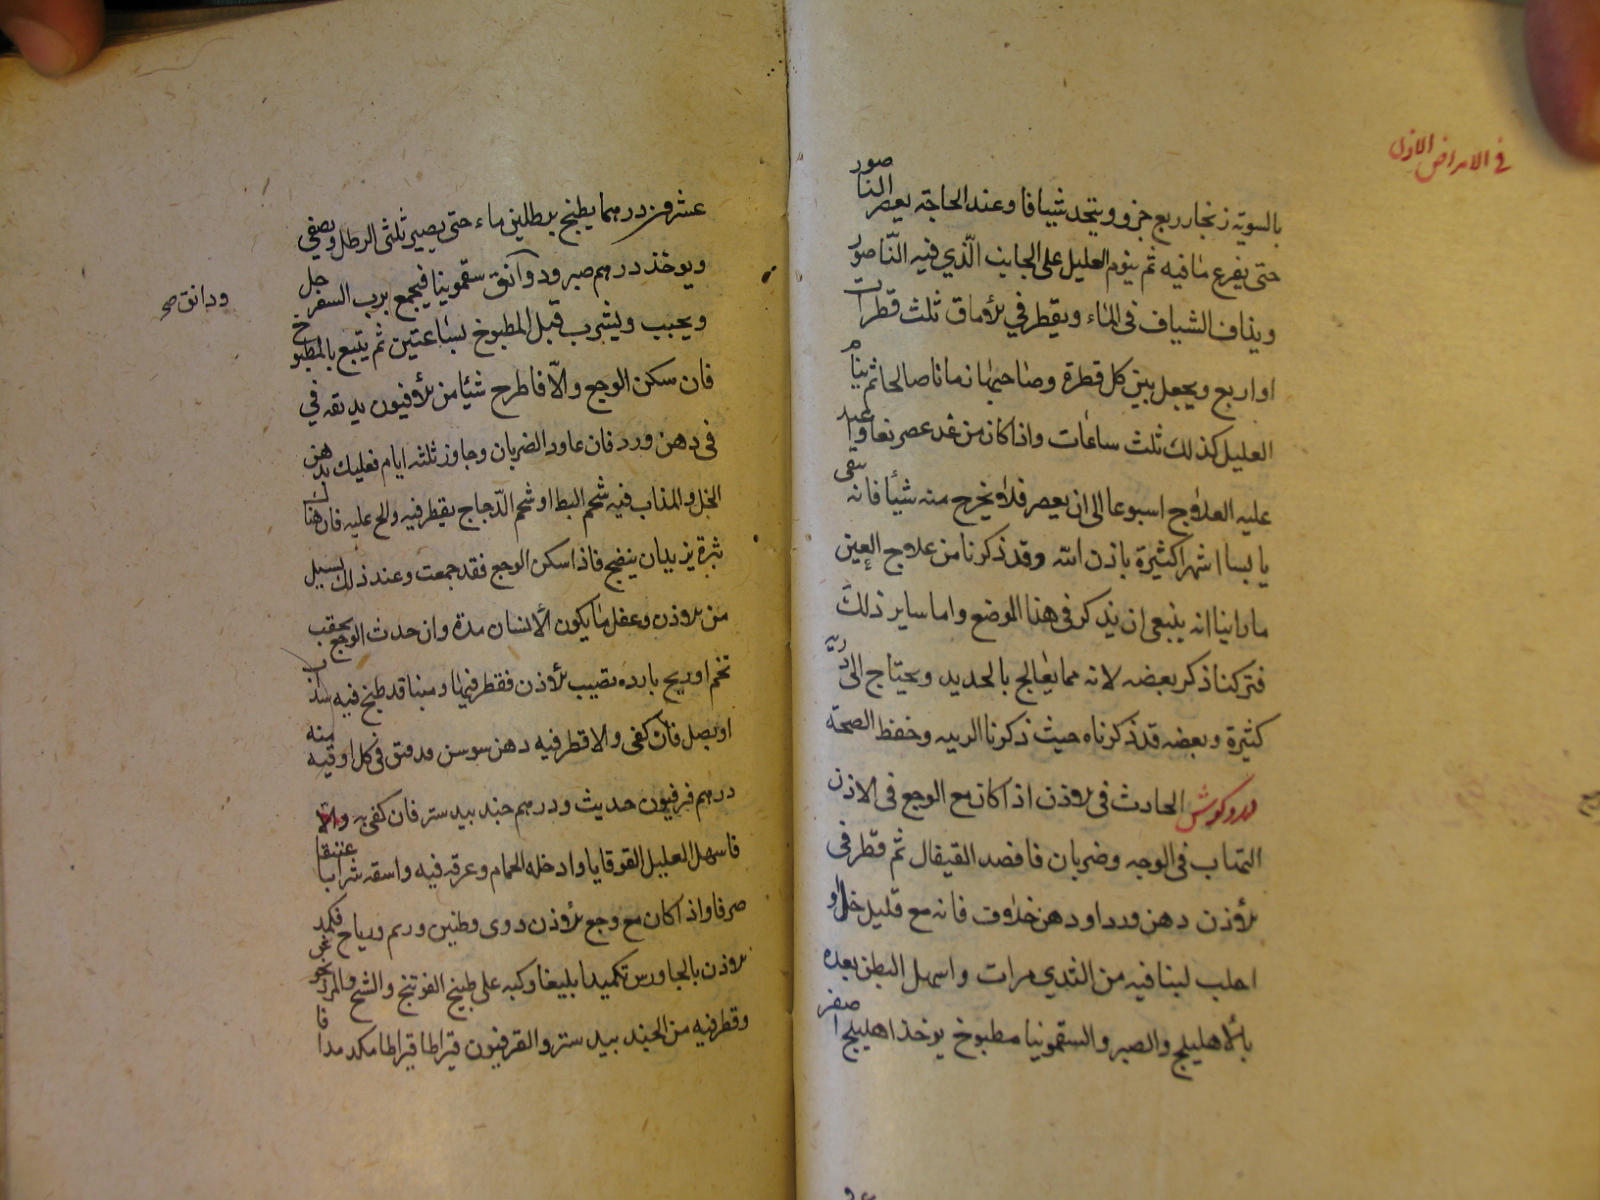 في الامراض الاذن
بالسويّة زنجار ربع جزو ويتخذ شيافا وعند الحاجة يعصر الناصور
حتى يفرغ ما فيه ثم ينوم العليل على الجانب الّذي فيه النّاصور
ويذاف الشياف فى الماء ويقطر في الاماق ثلث قطرات
او اربع ويجعل بين كل قطرة وصاحبها زمانا صالحا ثم ينام
العليل كذلك ثلث ساعات واذا كان من غد عصر نعما واعيد
عليه العلاج اسبوعا الى ان يعصر فلا يخرج منه شيأ فانه يبقى
يابسا اشهرا كثيرة باذن الله وقد ذكرنا من علاج العين
ما راينا انه ينبغى ان يذكر فى هذا الموضع واما ساير ذلك
فتركنا ذكر بعضه لانه مما يعالج بالحديد ويحتاج الى دربّة
كثيرة وبعضه قد ذكرناه حيث ذكرنا الزينه وحفظ الصحة
الحادث فى الاذن اذا كان مع الوجع فى الاذن
التهاب فى الوجه وضربان فافصد القيفال ثم قطر فى
الاذن دهن ورد او دهن خلاف فانه مع قليل خل او
احلب لبنا فيه من الثدي مرات واسهل البطن بعده
بالاهليلج والصبر والسقمونيا مطبوخ يوخذ اهليلج اصفر
عشرون درهما يطبخ برطلين ماء حتى يصير ثلثى الرطل ويصفي
ويوخذ درهم صبر ودانق سقمونيا فيجمع برب السفرجل
ودانق صح
ويحبب ويشرب قبل المطبوخ بساعتين ثم يتبع بالمطبوخ
فان سكن الوجع والّا فاطرح شيئا من الافيون يديفه في
فى دهن ورد فان عاود الضربان وجاوز ثلثه ايام فعليك بدهن
الخل المذاب فيه شحم البط او شحم الدّجاج يقطر فيه والح عليه فان هناك
بثرة يزيدان ينضج فاذا سكن الوجع فقد جمعت وعند ذلك يسيل
من الاذن وعقل ما يكون الانسان مدة وان حدث الوجع بعقب
تخم او ريح بارده تصيب الاذن فقطر فيها دهنا قد طبخ فيه سذاب
او بصل فان كفى والا قطر فيه دهن سوسن قد فتق فى كل اوقية منه
درهم فرفيون حديث ودرهم جند بيدستر فان كفى به والّا
فاسهل العليل القوقايا وادخله الحمام وعرقه فيه واسقه شرابا عتيقا
صرفا واذا كان مع وجع الاذن دوى وطنين ورم ورياح فكمد
الاذن بالجاورس تكميدا بليغا وكبه على طبيخ الفوتنج والشيح والمرزنجو
وقطر فيه من الجند بيدستر والفرفيون قيراطا قيراطا مكد مدافا